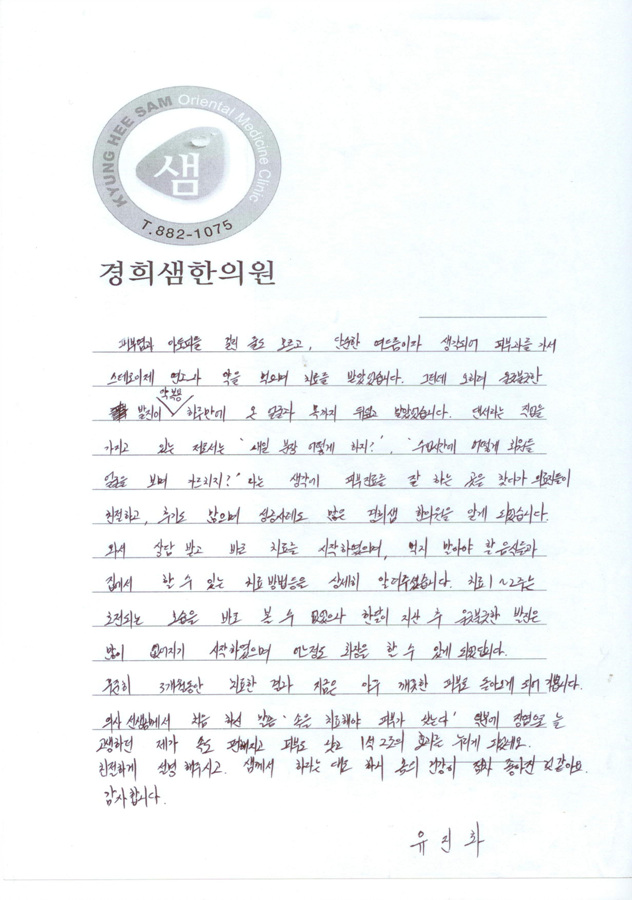 KYUNG HEE SAM Oriental Medicine Clinic
샘
T.882-1075
경희샘한의원
피부염과 아토피를 걸린 줄도 모르고, 단순한 여드름이라 생각되어 피부과를 가서
스테로이제 연고와 약을 먹으며 치료를 받았었습니다. 그런데 오히려 울긋불긋한
약 복용
발진이 하루만에 온 얼굴과 목까지 뒤덮고 말았었습니다. 댄서라는 직업을
가지고 있는 저로서는 '내일 분장 어떻게 하지?', '수업시간에 어떻게 회원들
얼굴을 보며 가르치지?' 라는 생각에 피부진료를 잘 하는 곳을 찾다가 의료진들이
친절하고, 후기도 많으며 성공사례도 많은 경희샘 한의원을 알게 되었습니다.
와서 상담 받고 바로 치료를 시작하였으며, 먹지 말아야 할 음식들과
집에서 할 수 있는 치료방법등을 상세히 알려주셨습니다. 치료 1~2주는
호전되는 모습을 바로 볼 수 없었으나 한달이 지난 후 울긋불긋한 발진은
많이 없어지기 시작하였으며 어느정도 화장을 할 수 있게 되었답니다.
꾸준히 3개월동안 치료한 결과 지금은 아주 깨끗한 피부로 돌아오게 되어 기쁩니다.
의사 선생님께서 처음 하신 말씀 '속을 치료해야 피부가 낫는다' 덕분에 장염으로 늘
고생하던 제가 속도 편해지고 피부도 낫고 1석 2조의 효과를 누리게 되었네요.
친절하게 설명 해주시고. 샘께서 하라는 대로 하니 몸의 건강이 점차 좋아진 것 같아요.
감사합니다.
유진화